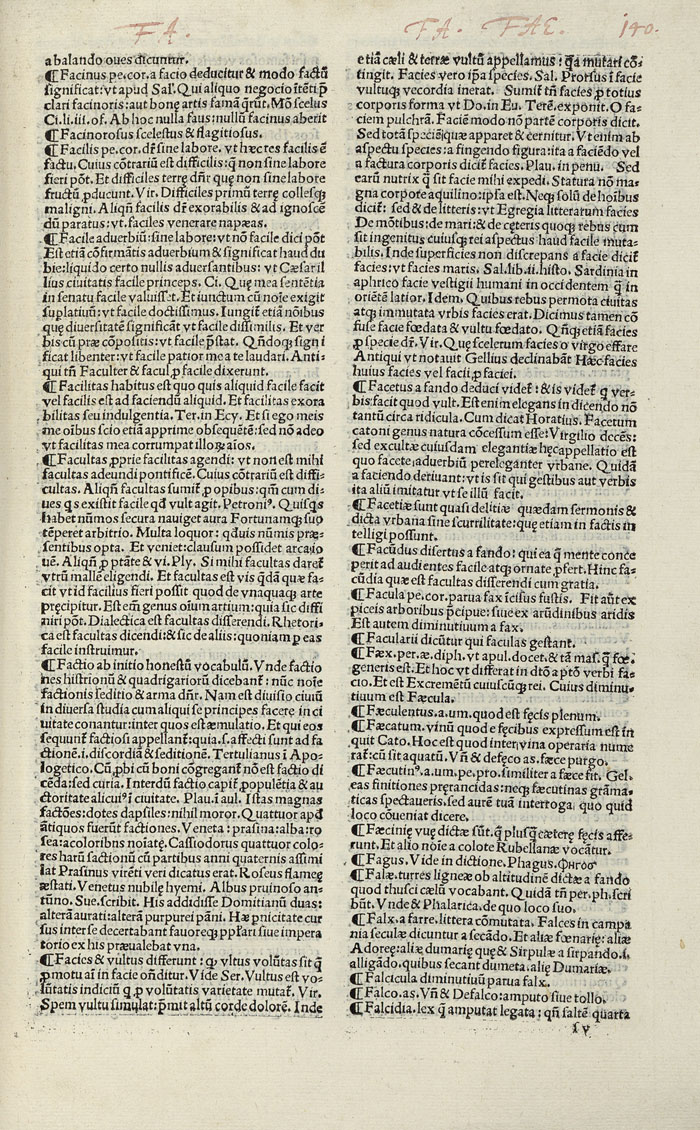 FA.
FA. FAE. 140.
a balando oues dicuntur.
¶Facinus pe. cor. a facio deducitur & modo factũ
significat: vt apud Sal'. Qui aliquo negocio ītēti p̄
clari facinoris: aut bonę artis famā q̄rūt. Mō scelus
Ci. li. iii. of. Ab hoc nulla faus: nullũ facinus aberit
¶Facinorosus scelestus & flagitiosus.
¶Facilis pe. cor. dr̄ sine labore. vt hæc res facilis ē
factu. Cuius cōtrariũ est difficilis: q̄ non sine labore
fieri pōt. Et difficiles terrę dn̄r quę non sine labore
fructũ ꝓducunt. Vir. Difficiles primũ terrę collesqꝫ
maligni. Aliqn̄ facilis dr̄ exorabilis & ad ignoscē
dũ paratus: vt. faciles venerare napæas.
¶Facile aduerbiũ: sine labore: vt nō facile dici pōt
Est etiā cōfirmātis aduerbium & significat haud du
bie: liquido certo nullis aduersantibus: vt Cæsar il
lius ciuitatis facile princeps. Ci. Quę mea sentētia
in senatu facile valuisset. Et iunctum cũ noīe exigit
suplatiuũ: vt facile doctissimus. Iungit̃ etiā nōibus
quę diuersitatē significāt vt facile dissimilis. Et ver
bis cũ præ cōpositis: vt facile p̄stat. Qn̄doqꝫ signi
ficat libenter: vt facile patior me a te laudari. Anti-
qui tn̄ Faculter & facul ꝓ facile dixerunt.
¶Facilitas habitus est quo quis aliquid facile facit
vel facilis est ad faciendũ aliquid. Et facilitas exora
bilitas seu indulgentia. Ter. in Ecy. Et si ego meis
me oībus scio etiā apprime obsequētē: sed nō adeo
vt facilitas mea corrumpat illoꝝ aīos.
¶Facultas ꝓprie facilitas agendi: vt non est mihi
facultas adeundi pontificē. Cuius cōtrariũ est diffi-
cultas. Aliqn̄ facultas sumit̃ ꝓ opibus: qm̄ cum di-
ues q̄s existit facile qd̄ vult agit. Petroniꝰ. Quisqs
habet nũmos secura nauiget aura Fortunamqꝫ suo
tēperet arbitrio. Multa loquor: qduis numis præ-
sentibus opta. Et veniet: clausum possidet arca io
uē. Aliqn̄ ꝓ ptāte & vi. Ply. Si mihi facultas daret̃
vtrũ malle eligendi. Et facultas est vis qdā quæ fa-
cit vt id facilius fieri possit quod de vnaquaqꝫ arte
pręcipitur. Est em̄ genus oīum artium: quia sic diffi
niri pōt. Dialectica est facultas differendi. Rhetori-
ca est facultas dicendi: & sic de aliis: quoniam ꝑ eas
facile instruimur.
¶Factio ab initio honestũ vocabulũ. Vnde factio
nes histrionũ & quadrigariorũ dicebant̃: nũc noīe
factionis seditio & arma dn̄t. Nam est diuisio ciuiũ
in diuersa studia cum aliqui se principes facere in ci
uitate conantur: inter quos est æmulatio. Et qui eos
sequunt̃ factiosi appellant̃: quia .s. affecti sunt ad fa
ctionē .i. discordiā & seditionē. Tertulianus i Apo-
logetico. Cũ ꝓbi cũ boni cōgregant̃ nō est factio di
cēda: sed curia. Interdũ factio capit̃ ꝓ opulētia & au
ctoritate alicuiꝰ i ciuitate. Plau. i aul. Istas magnas
factōes: dotes dapsiles: nihil moror. Quattuor apd̄
ātiquos fuerũt factiones. Veneta: prasina: alba: ro
sea: a coloribus noīatę. Cassiodorus quattuor colo-
res harũ factionũ cũ partibus anni quaternis assimi
lat Prasinus virēti veri dicatus erat. Roseus flameę
æstati. Venetus nubilę hyemi. Albus pruinoso an-
tũno. Sue. scribit. His addidisse Domitianũ duas:
alterā aurati: alterā purpurei pāni. Hæ pnicitate cur
sus inter se decertabant fauoreqꝫ ppl̄ari siue impera
torio ex his præualebat vna.
¶Facies & vultus differunt: qꝫ vltus volũtas sit q̄
ꝓ motu aī in facie on̄ditur. Vide Ser. Vultus est vo-
lũtatis indiciũ q̄ ꝓ volũtatis varietate mutat̃. Vir.
Spem vultu simulat: p̄mit altũ corde dolorē. Inde
etiā cæli & terræ vultũ appellamus: qa mutari cō-
tingit. Facies vero ip̄a species. Sal. Prorsus i facie
vultuqꝫ vecordia inerat. Sumit̃ tn̄ facies ꝓ totius
corporis forma vt Do. in Eu. Terē. exponit. O fa-
ciem pulchrā. Faciē modo nō partē corporis dicit.
Sed totā speciēqꝫ quæ apparet & cernitur. Vt enim ab
aspectu species: a fingendo figura: ita a faciēdo vel
a factura corporis dicit̃ facies. Plau. in penu. Sed
earũ nutrix q̄ sit facie mihi expedi. Statura nō ma-
gna corpore aquilino: ipsa est. Neqꝫ solũ de hoībus
dicit̃: sed & de litteris: vt Egregia litterarum facies
De mōtibus: de mari: & de cęteris quoqꝫ rebus cum
sit ingenitus cuiusqꝫ rei aspectus haud facile muta-
bilis. Inde superficies non discrepans a facie dicit̃
facies: vt facies maris. Sal. lib. ii. histo. Sardinia in
aphrico facie vestigii humani in occidentem q̄ in
oriētē latior. Idem. Quibus rebus permota ciuitas
atqꝫ immutata vrbis facies erat. Dicimus tamen cō
fuse facie fœdata & vultu fœdato. Qn̄qꝫ etiā facies
ꝓ specie dr̄. Vir. Quę scelerum facies o virgo effare
Antiqui vt notauit Gellius declinabāt Hæc facies
huius facies vel facii ꝓ faciei.
¶Facetus a fando deduci videt̃: & is videt̃ q̄ ver-
bis facit quod vult. Est enim elegans in dicendo nō
tantũ circa ridicula. Cum dicat Horatius. Facetum
catoni genus natura cōcessum esse: Virgilio decēs:
sed excultæ cuiusdam elegantiæ hęc appellatio est
quo facete: aduerbiũ pereleganter vrbane. Quidā
a faciendo deriuant: vt is sit qui gestibus aut verbis
ita aliũ imitatur vt se illũ facit.
¶Facetiæ sunt quasi delitiæ quædam sermonis &
dicta vrbana sine scurrilitate: quę etiam in factis in
telligi possunt.
¶Facũdus disertus a fando: qui ea q̄ mente conce
perit ad audientes facile atqꝫ ornate ꝓfert. Hinc fa-
cũdia quæ est facultas differendi cum gratia.
¶Facula pe. cor. parua fax īcisus fustis. Fit aut̃ ex
piceis arboribus p̄cipue: siue ex arũdinibus aridis
Est autem diminutiuum a fax.
¶Facularii dicũtur qui faculas gestant.
¶Fæx. per. æ. diph. vt apul. docet. & tā mas. q̄ fœ.
generis est. Et hoc vt differat in dtō a ptō verbi fa-
cio. Et est Excremētũ cuiuscũqꝫ rei. Cuius diminu-
tiuum est Fæcula.
¶Fæculentus. a. um. quod est fęcis plenum.
¶Fæcatum. vinũ quod e fęcibus expressum est in
quit Cato. Hoc est quod inter vina operaria nume
rat̃: cũ sit aquatũ. Vn̄ & defęco as. fæce purgo.
¶Fæcutinꝰ. a. um. pe. pro. similiter a fæce fit. Gel-
eas finitiones pręrancidas: neqꝫ fæcutinas grāma-
ticas spectaueris. sed aurē tuā interroga. quo quid
loco cōueniat dicere.
¶Fæcinię vuę dictæ sũt. q̄ plusqꝫ cæterę fęcis affe-
runt. Et alio noīe a colore Rubellanæ vocātur.
¶Fagus. Vide in dictione. Phagus. Φηγος
¶Falæ. turres ligneæ ob altitudinē dictæ a fando
quod thusci cælũ vocabant. Quidā tn̄ per. ph. scri
bũt. Vnde & Phalarica. de quo loco suo.
¶Falx. a farre. littera cōmutata. Falces in campa
nia seculæ dicuntur a secādo. Et aliæ fœnarię: aliæ
Adoreę: alię dumarię quę & Sirpulæ a sirpando .i.
alligādo. quibus secant dumeta. alię Dumariæ.
¶Falcicula diminutiuũ parua falx.
¶Falco. as. Vn̄ & Defalco: amputo siue tollo.
¶Falcidia. lex q̄ amputat legata: qn̄ saltē quarta
s v